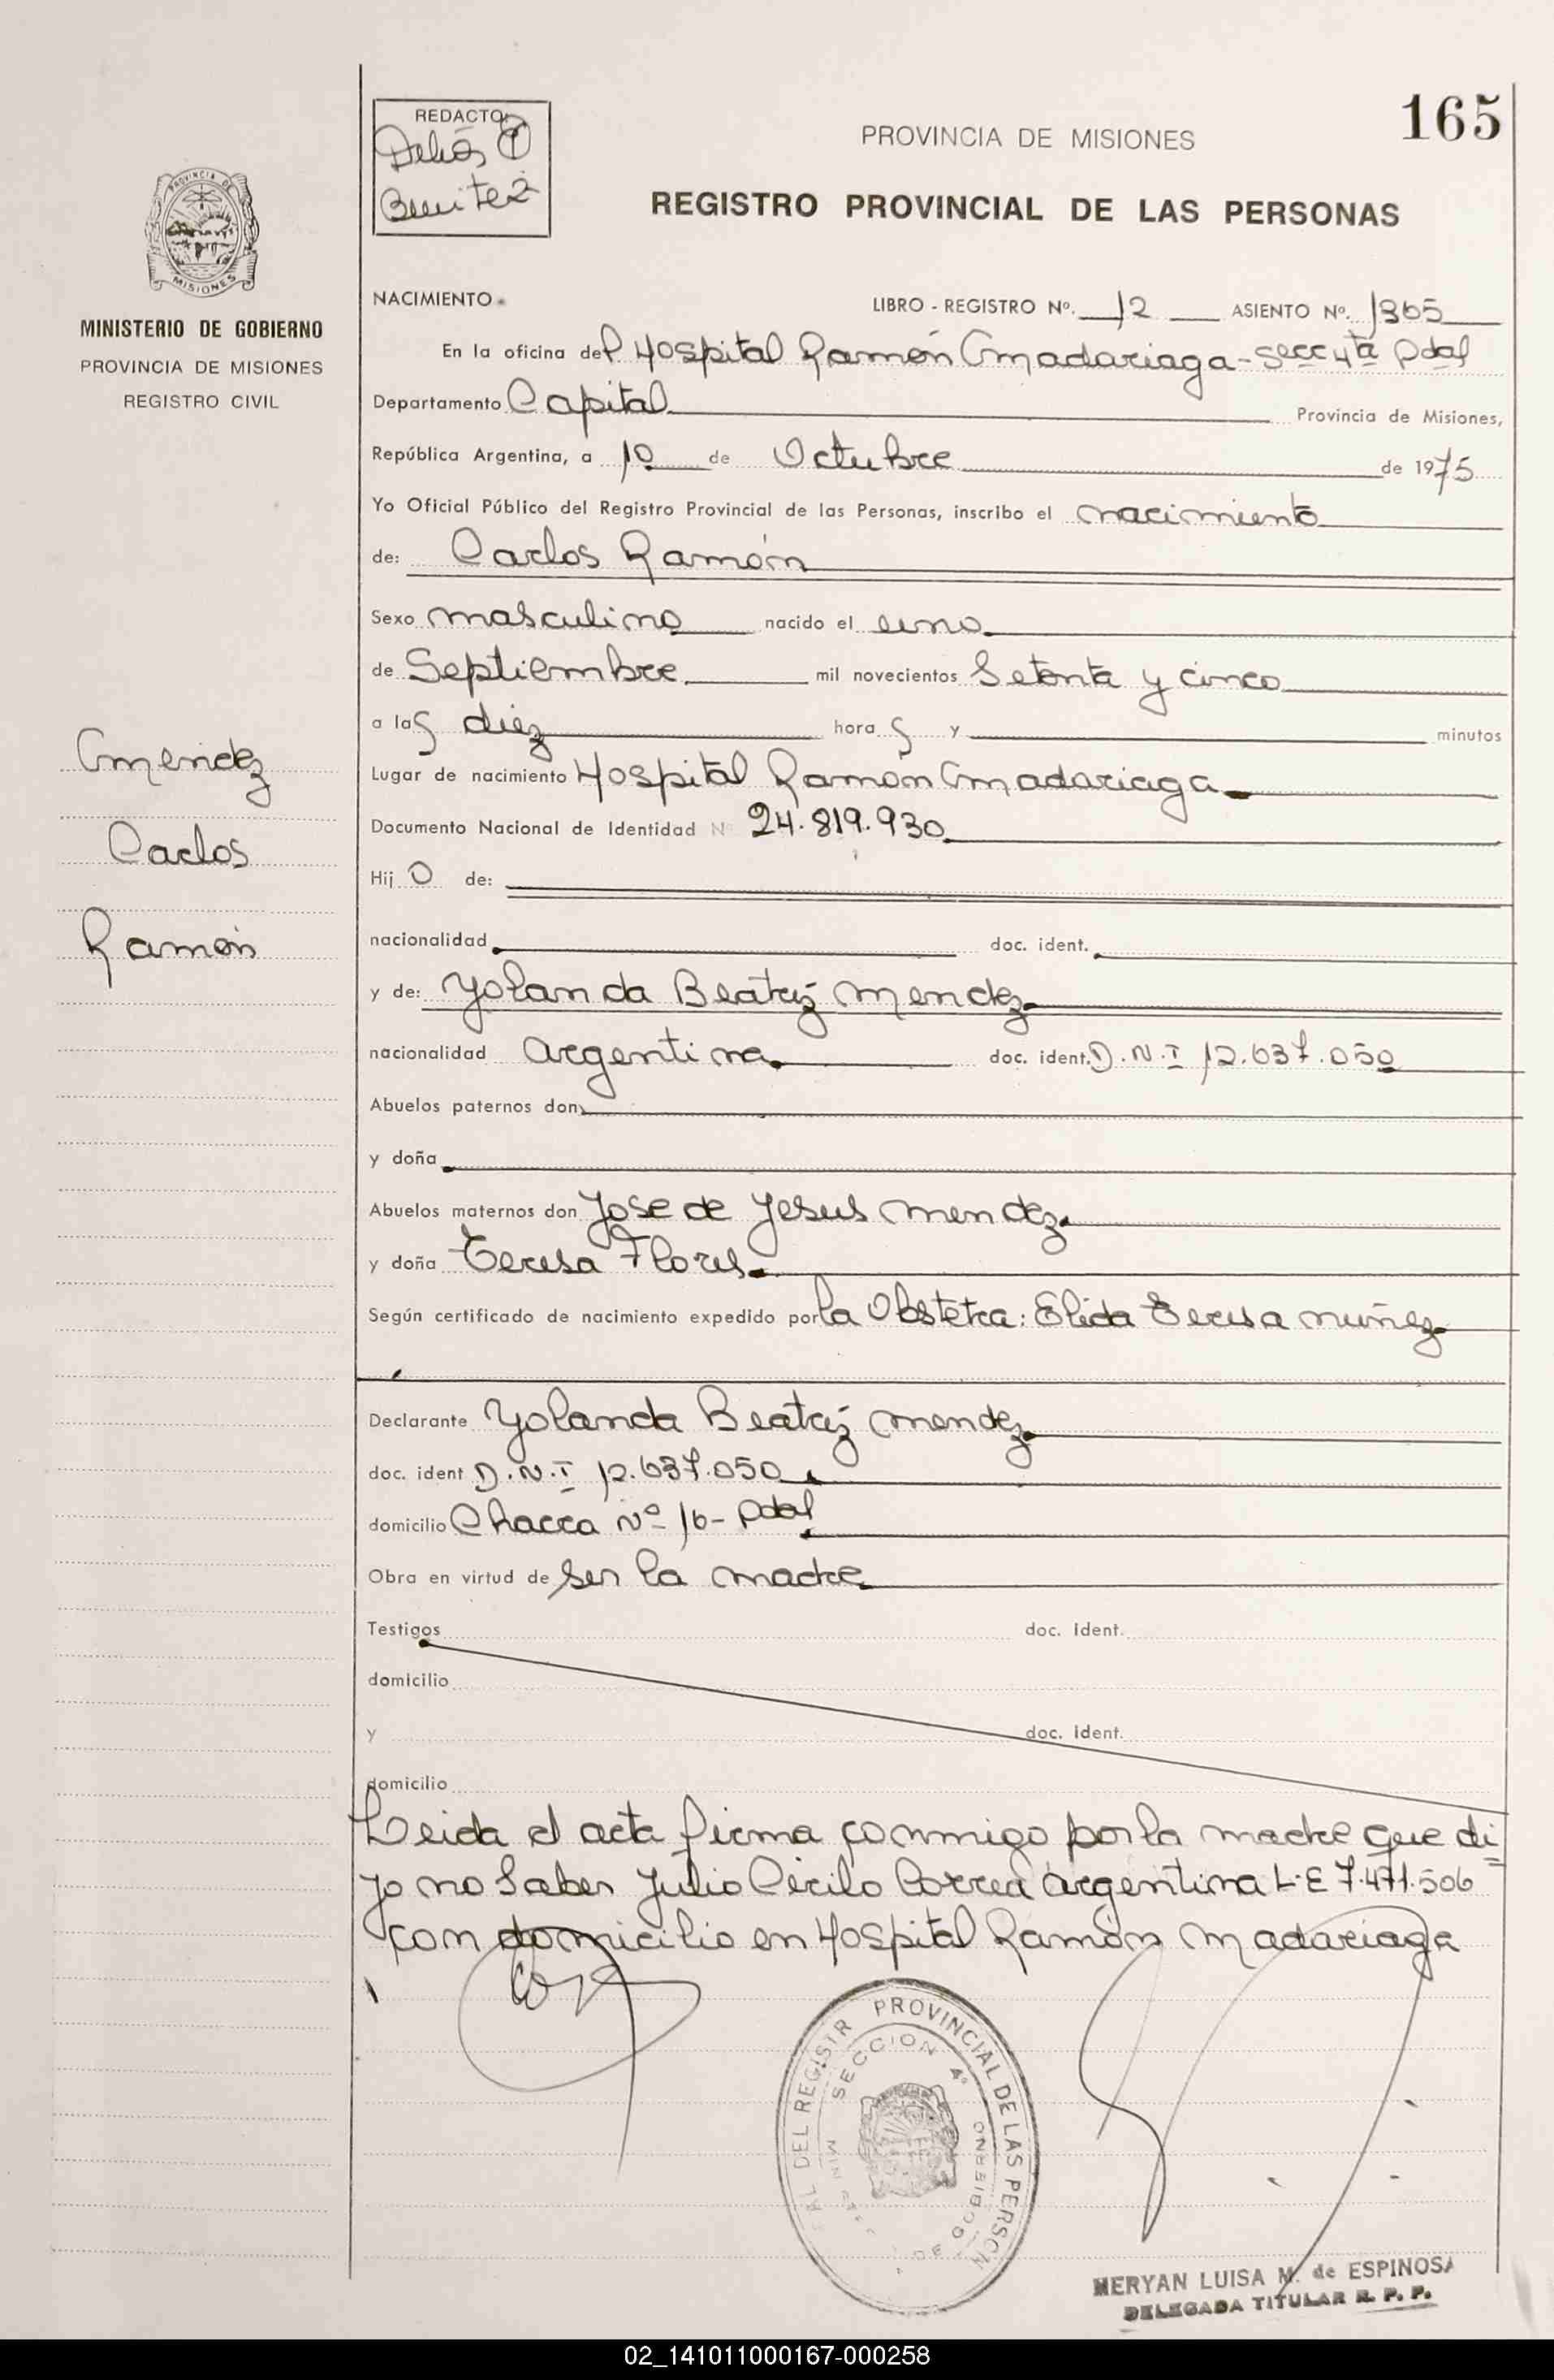 165
REDACTO:
Delia
Benitez
PROVINCIA DE MISIONES
REGISTRO PROVINCIAL DE LAS PERSONAS
PROVINCIA DE
MISIONES
MINISTERIO DE GOBIERNO
PROVINCIA DE MISIONES
REGISTRO CIVIL
NACIMIENTO
LIBRO - REGISTRO Nº. 12 ASIENTO Nº. 1365
En la oficina del Hospital Ramón Madariaga - Secc 4ta Pdas
Departamento Capital Provincia de Misiones,
República Argentina, a 10 de Octubre de 1975
Yo Oficial Público del Registro Provincial de las Personas, inscribo el nacimiento
de: Carlos Ramón
Sexo masculino nacido el uno
de Septiembre mil novecientos Setenta y cinco
a las diez hora s y minutos
Lugar de nacimiento Hospital Ramón Madariaga
Documento Nacional de Identidad Nº 24.819.930
Hij o de:
nacionalidad doc. ident.
y de: Yolanda Beatriz Mendez
nacionalidad argentina doc. ident. D.N.I 12.637.050
Abuelos paternos don
y doña
Abuelos maternos don Jose de Jesus Mendez
y doña Teresa Flores
Según certificado de nacimiento expedido por la Obstetra: Elida Teresa Nuñez
Declarante Yolanda Beatriz Mendez
doc. ident D.N.I 12.637.050
domicilio Chacra Nº 16 - Pdas
Obra en virtud de ser la madre
Testigos doc. ident.
domicilio
y doc. ident.
domicilio
Leida el acta firma conmigo por la madre que di
jo no saber Julio Cirilo Correa argentina L.E 7.471.506
con domicilio en Hospital Ramón Madariaga
Mendez
Carlos
Ramón
DEL REGISTR PROVINCIAL DE LAS PERSON
SECCION 4º
DE GOBIERNO
MERYAN LUISA M. de ESPINOSA
DELEGADA TITULAR R. P. P.
02_141011000167-000258